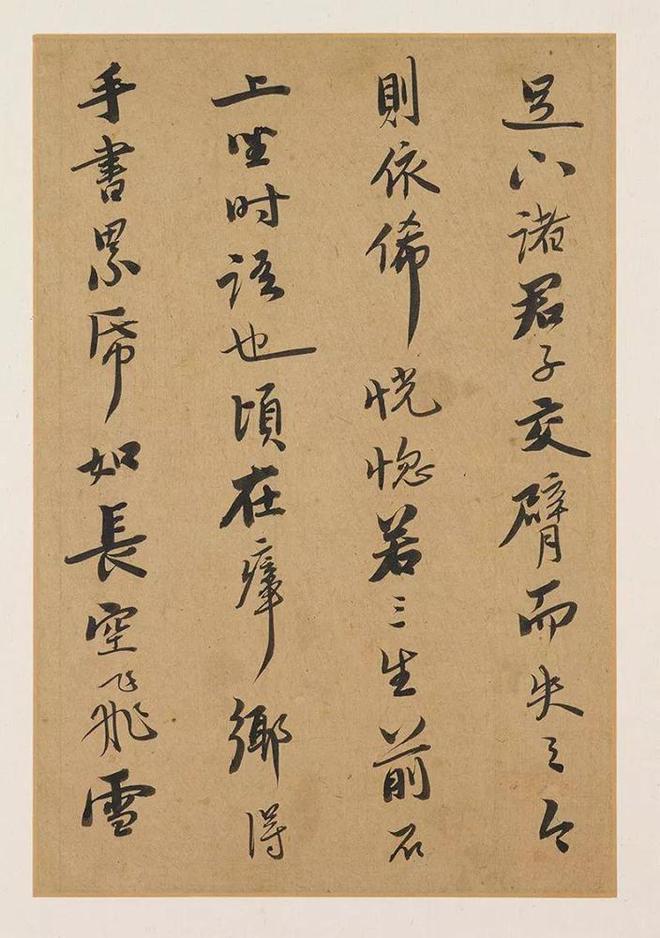 足下諸君子交臂而失之今
則依俙恍惚若三生前石
上坐时語也頃在瘴鄉得
手書累帋如長空飛雪